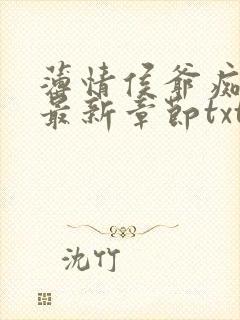 薄情侯爷痴
最新章节txt
沈竹